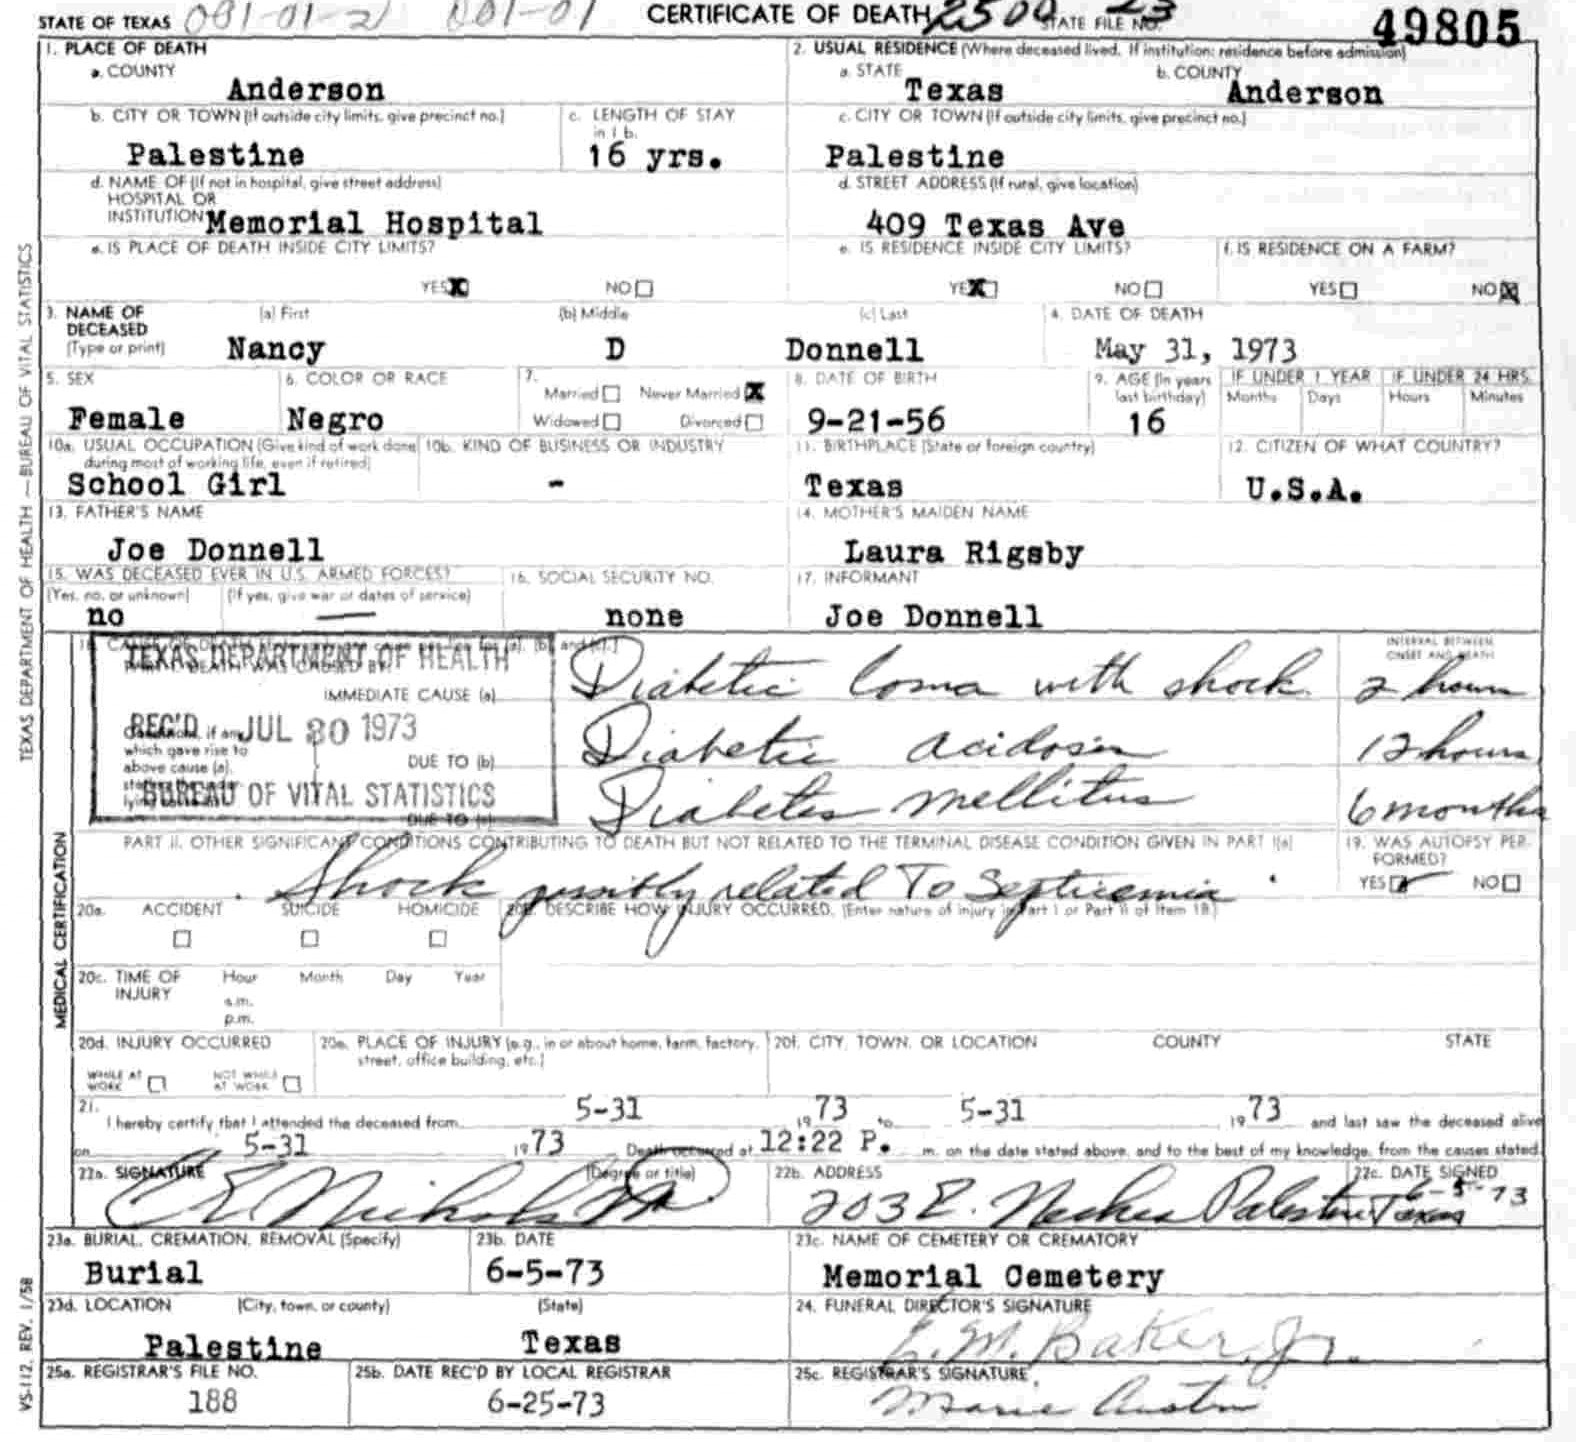 STATE OF TEXAS 001-01-2 001-01 CERTIFICATE OF DEATH 2500 STATE FILE NO. 23 49805
1. PLACE OF DEATH 2. USUAL RESIDENCE (Where deceased lived. If institution: residence before admission)
a. COUNTY a. STATE b. COUNTY
Anderson Texas Anderson
b. CITY OR TOWN (If outside city limits, give precinct no.) c. LENGTH OF STAY in 1 b. c. CITY OR TOWN (If outside city limits, give precinct no.)
Palestine 16 yrs. Palestine
d. NAME OF (If not in hospital, give street address) d. STREET ADDRESS (If rural, give location)
HOSPITAL OR
INSTITUTION Memorial Hospital 409 Texas Ave
e. IS PLACE OF DEATH INSIDE CITY LIMITS? e. IS RESIDENCE INSIDE CITY LIMITS? f. IS RESIDENCE ON A FARM?
YES NO YES NO YES NO
3. NAME OF DECEASED (a) First (b) Middle (c) Last 4. DATE OF DEATH
(Type or print) Nancy D Donnell May 31, 1973
5. SEX 6. COLOR OR RACE 7. Married Never Married 8. DATE OF BIRTH 9. AGE (In years last birthday) IF UNDER 1 YEAR IF UNDER 24 HRS.
Months Days Hours Minutes
Female Negro Widowed Divorced 9-21-56 16
10a. USUAL OCCUPATION (Give kind of work done during most of working life, even if retired) 10b. KIND OF BUSINESS OR INDUSTRY 11. BIRTHPLACE (State or foreign country) 12. CITIZEN OF WHAT COUNTRY?
School Girl - Texas U.S.A.
13. FATHER'S NAME 14. MOTHER'S MAIDEN NAME
Joe Donnell Laura Rigsby
15. WAS DECEASED EVER IN U.S. ARMED FORCES? 16. SOCIAL SECURITY NO. 17. INFORMANT
(Yes, no, or unknown) (If yes, give war or dates of service)
no — none Joe Donnell
18. CAUSE OF DEATH (a), (b), and (c).] INTERVAL BETWEEN ONSET AND DEATH
TEXAS DEPARTMENT OF HEALTH
PART I. DEATH WAS CAUSED BY:
IMMEDIATE CAUSE (a) Diabetic Coma with shock 2 hours
REC'D JUL 30 1973
Conditions, if any, which gave rise to above cause (a),
DUE TO (b) Diabetic acidosis 12 hours
BUREAU OF VITAL STATISTICS
DUE TO (c) Diabetes mellitus 6 months
PART II. OTHER SIGNIFICANT CONDITIONS CONTRIBUTING TO DEATH BUT NOT RELATED TO THE TERMINAL DISEASE CONDITION GIVEN IN PART I(a) 19. WAS AUTOPSY PERFORMED?
Shock possibly related To Septicemia YES NO
20a. ACCIDENT SUICIDE HOMICIDE 20b. DESCRIBE HOW INJURY OCCURRED. (Enter nature of injury in Part I or Part II of Item 18.)
20c. TIME OF INJURY Hour Month Day Year
a.m.
p.m.
20d. INJURY OCCURRED 20e. PLACE OF INJURY (e.g., in or about home, farm, factory, street, office building, etc.) 20f. CITY, TOWN, OR LOCATION COUNTY STATE
WHILE AT WORK NOT WHILE AT WORK
21. I hereby certify that I attended the deceased from 5-31 1973 to 5-31 1973 and last saw the deceased alive
on 5-31 1973 Death occurred at 12:22 P. m. on the date stated above, and to the best of my knowledge, from the causes stated.
22a. SIGNATURE (Degree or title) 22b. ADDRESS 22c. DATE SIGNED
203 E. Neches Palestine Texas 6-5-73
23a. BURIAL, CREMATION, REMOVAL (Specify) 23b. DATE 23c. NAME OF CEMETERY OR CREMATORY
Burial 6-5-73 Memorial Cemetery
23d. LOCATION (City, town, or county) (State) 24. FUNERAL DIRECTOR'S SIGNATURE
Palestine Texas E. M. Baker, Jr.
25a. REGISTRAR'S FILE NO. 25b. DATE REC'D BY LOCAL REGISTRAR 25c. REGISTRAR'S SIGNATURE
188 6-25-73 Marie Austin
TEXAS DEPARTMENT OF HEALTH — BUREAU OF VITAL STATISTICS
MEDICAL CERTIFICATION
VS-112, REV. 1/58